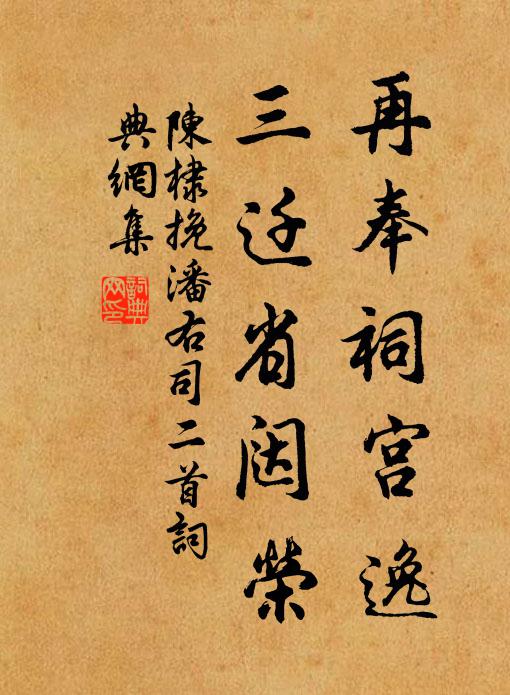 再奉祠宮逸
三迁省闼榮
陳棣挽潘右司二首詞
典網集
詞典
网印